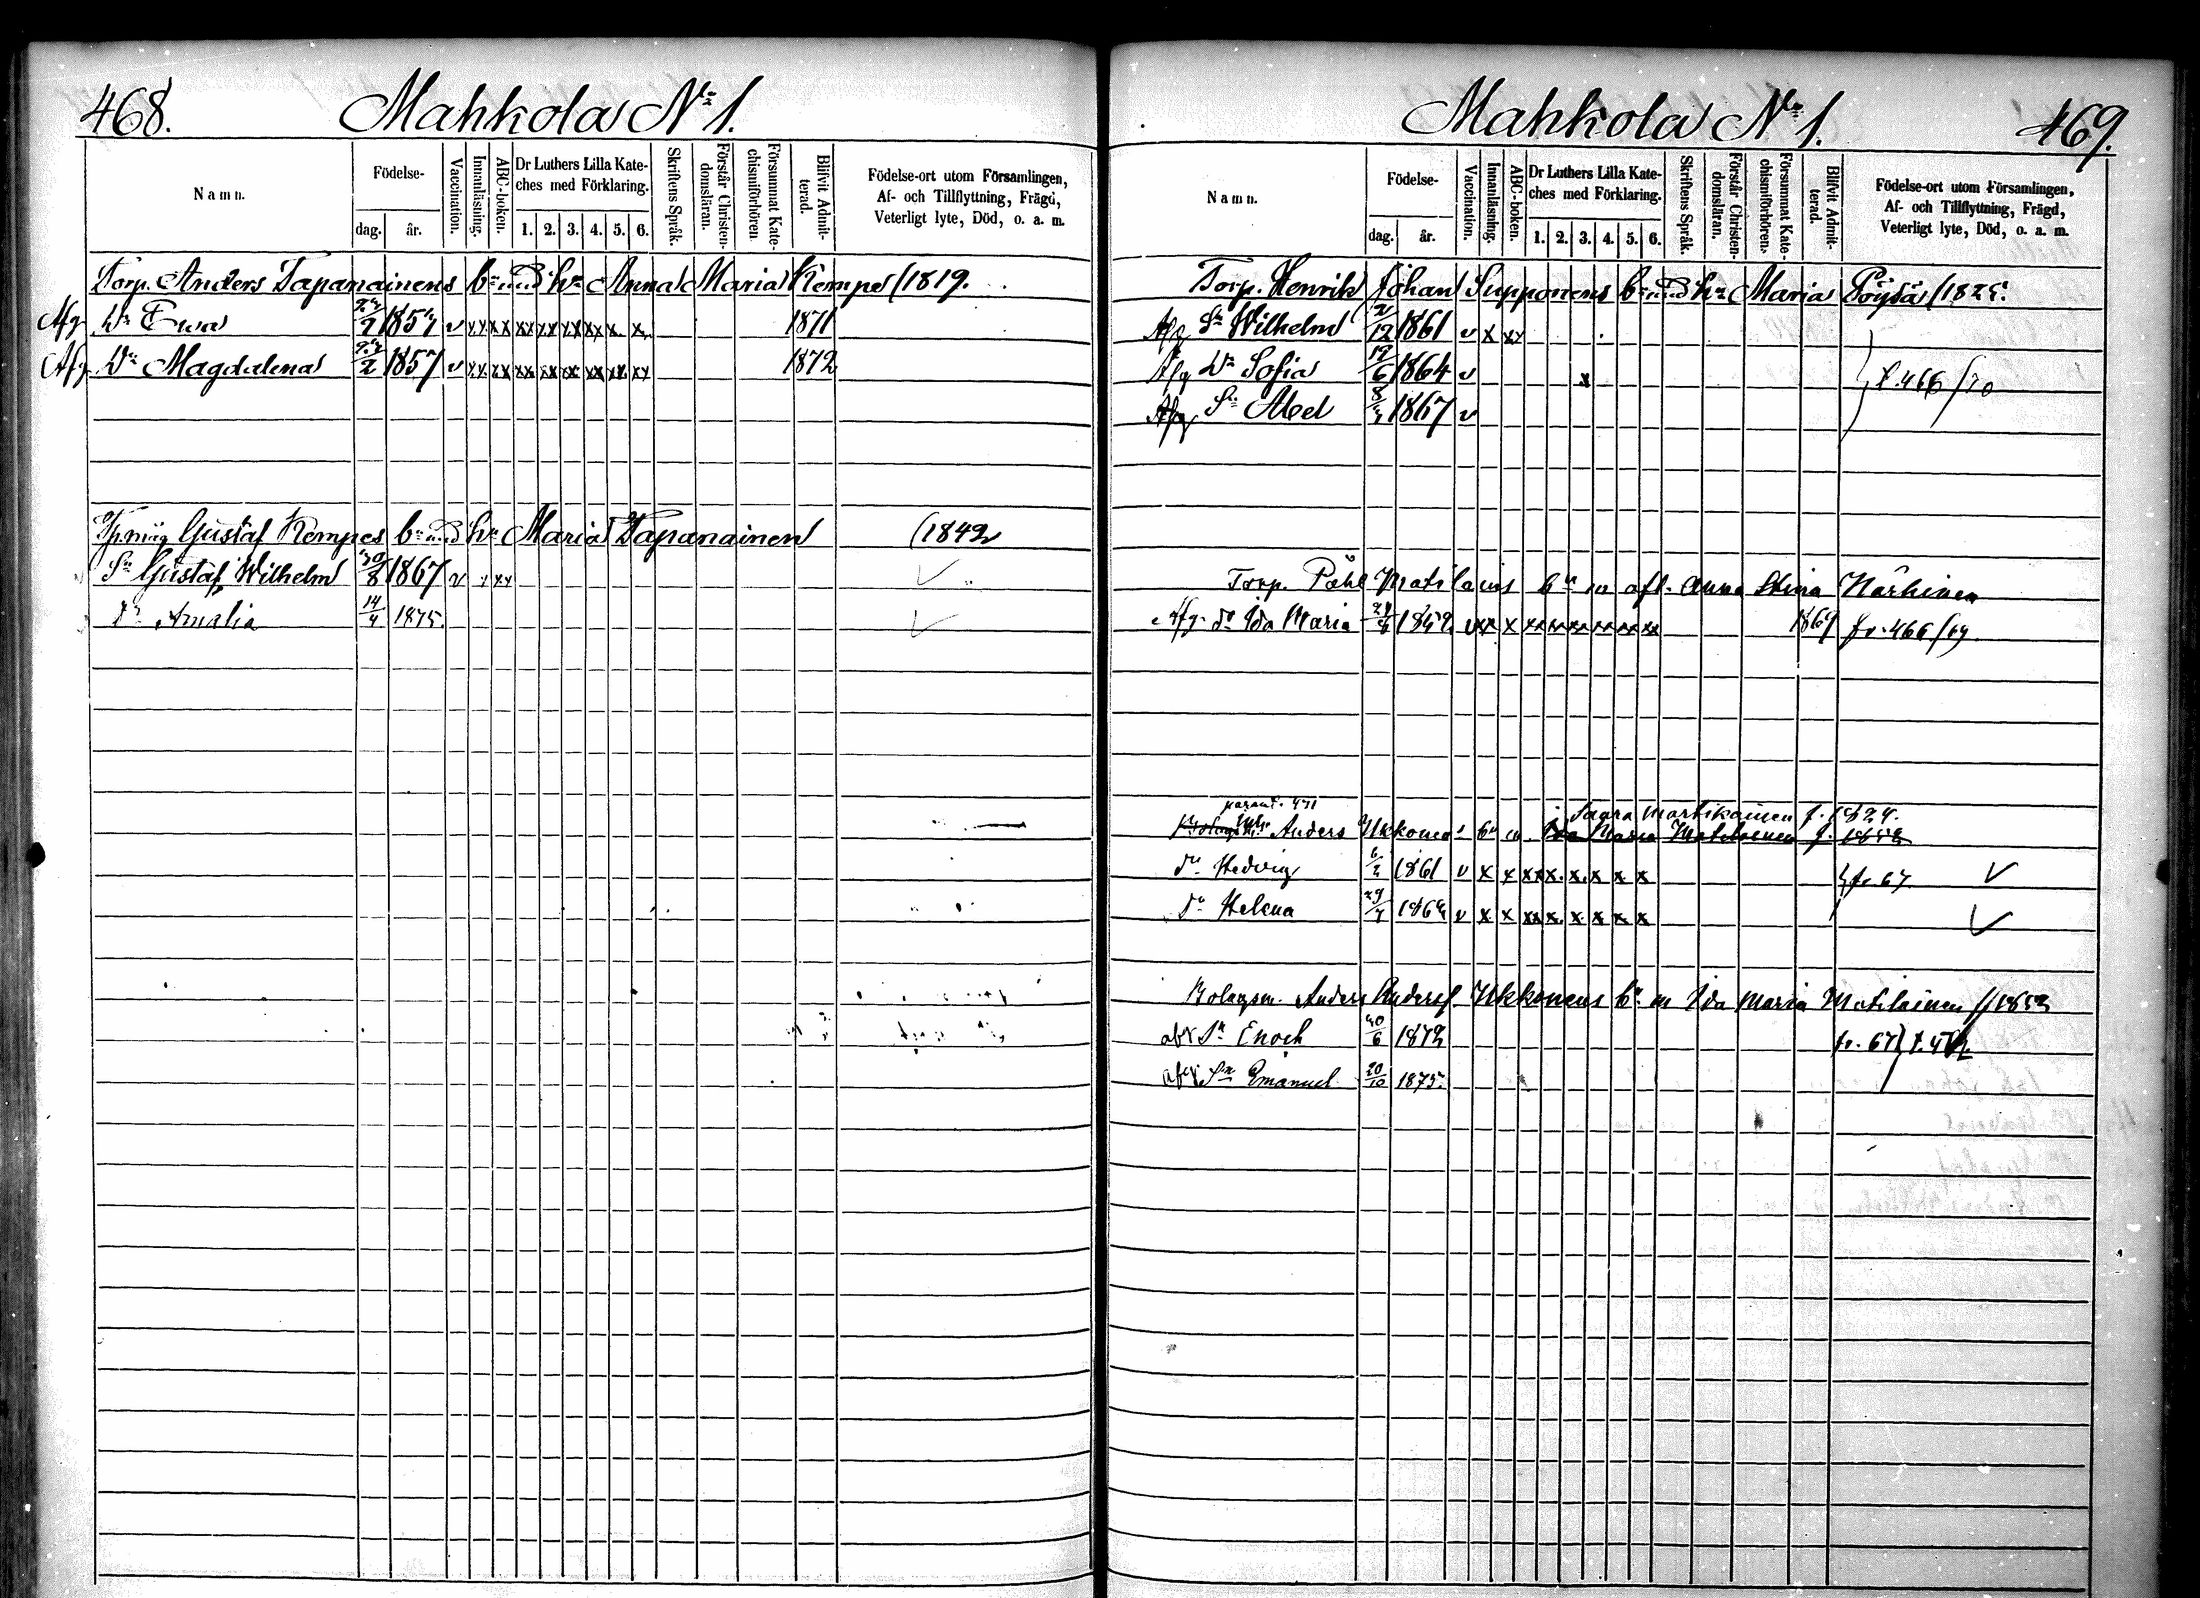 468.
Mahkola No 1.
Namn.
Födelse-
dag.
år.
Vaccination.
Innanläsning.
ABC-boken.
Dr Luthers Lilla Kate-
ches med Förklaring.
1. 2. 3. 4. 5. 6.
Skriftens Språk.
Förstår Christen-
domsläran.
Försummat Kate-
chismiförhören.
Blifvit Admit-
terad.
Födelse-ort utom Församlingen,
Af- och Tillflyttning, Frägd,
Veterligt lyte, Död, o. a. m.
Torp. Anders Tapanainens bn med hu Anna Maria Kempe (1819.
Afg Dr Ewa 1857 v xx xx xx xx xx xx x x 1871
Afg Dr Magdalena 1857 v xx xx xx xx xx xx xx xx 1872
Gustaf Kempes bn med hu Maria Tapanainen (1842
Sn Gustaf Wilhelm 30/8 1867 v x xx
Dr Amalia 14/4 1875.
469.
Mahkola No 1.
Namn.
Födelse-
dag.
år.
Vaccination.
Innanläsning.
ABC-boken.
Dr Luthers Lilla Kate-
ches med Förklaring.
1. 2. 3. 4. 5. 6.
Skriftens Språk.
Förstår Christen-
domsläran.
Försummat Kate-
chismiförhören.
Blifvit Admit-
terad.
Födelse-ort utom Församlingen,
Af- och Tillflyttning, Frägd,
Veterligt lyte, Död, o. a. m.
Torp. Henrik Johan Supponens bn med hu Maria Pöysä (1825.
Afg Sn Wilhelm 2/12 1861 v x xx
Afg Dr Sofia 12/6 1864 v x } t. 466/70
Afg Sn Abel 1867 v
Torp. Påhl Matilains bn m afl. Anna Stina Närhinen
Afg. dr Ida Maria 1852 v xx x xx xx xx xx xx xx 1869 fr. 466/69.
471
Saara Martikainen f. 1824.
Anders Ukkonens bn m. Ida Maria Matilainen f. 1852
dr Hedvig 6/2 1861 v x x xx x. x. x x x } fr. 67
dr Helena 1864 v x x xx x. x x x x
Bolagsm. Anders Andersf. Ukkonens bn m Ida Maria Matilainen f/1852
Sn Enoch 30/6 1872 fr. 67
Sn Emanuel 20/10 1875